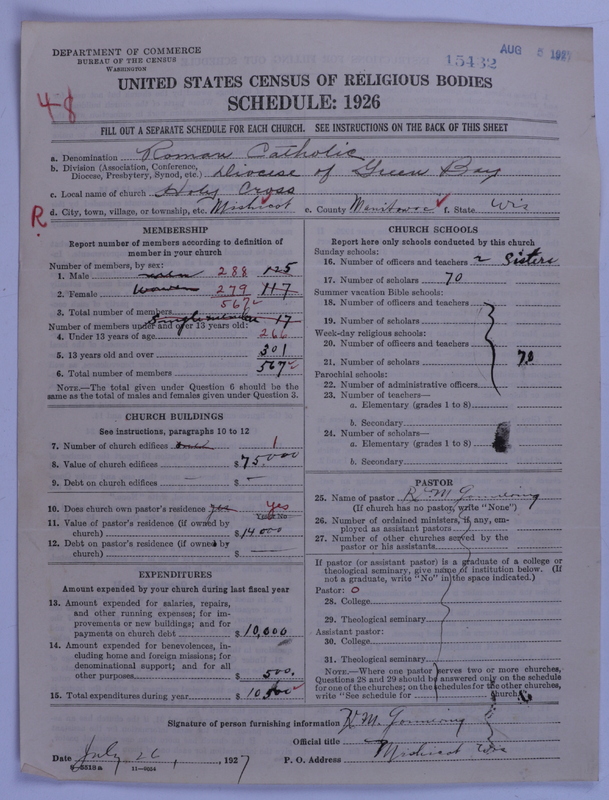 DEPARTMENT OF COMMERCE
BUREAU OF THE CENSUS
WASHINGTON
15432
AUG 5 1927
UNITED STATES CENSUS OF RELIGIOUS BODIES
SCHEDULE: 1926
48
FILL OUT A SEPARATE SCHEDULE FOR EACH CHURCH. SEE INSTRUCTIONS ON THE BACK OF THIS SHEET
a. Denomination Roman Catholic
b. Division (Association, Conference, Diocese, Presbytery, Synod, etc.) Diocese of Green Bay
c. Local name of church Holy Cross
R
d. City, town, village, or township, etc. Mishicot e. County Manitowoc f. State Wis
MEMBERSHIP
Report number of members according to definition of
member in your church
Number of members, by sex:
1. Male 288 125
2. Female women 279 117
3. Total number of members 567
Number of members under and over 13 years old: 17
4. Under 13 years of age 266
5. 13 years old and over 301
6. Total number of members 567
NOTE.—The total given under Question 6 should be
same as the total of males and females given under Question 3.
CHURCH BUILDINGS
See instructions, paragraphs 10 to 12
7. Number of church edifices 1
8. Value of church edifices $ 75.000
9. Debt on church edifices $ —
10. Does church own pastor's residence yes Yes
Yes or No
11. Value of pastor's residence (if owned by
church) $ 14000
12. Debt on pastor's residence (if owned by
church) $
EXPENDITURES
Amount expended by your church during last fiscal year
13. Amount expended for salaries, repairs,
and other running expenses; for im-
provements or new buildings; and for
payments on church debt $ 10,000
14. Amount expended for benevolences, in-
cluding home and foreign missions; for
denominational support; and for all
other purposes $ 500.
15. Total expenditures during year $ 10500
CHURCH SCHOOLS
Report here only schools conducted by this church
Sunday schools:
16. Number of officers and teachers 2 Sisters
17. Number of scholars 70
Summer vacation Bible schools:
18. Number of officers and teachers
19. Number of scholars
Week-day religious schools:
20. Number of officers and teachers
21. Number of scholars 70
Parochial schools:
22. Number of administrative officers
23. Number of teachers—
a. Elementary (grades 1 to 8)
b. Secondary
24. Number of scholars—
a. Elementary (grades 1 to 8)
b. Secondary
PASTOR
25. Name of pastor
(If church has no pastor, write "None")
26. Number of ordained ministers, if any, em-
ployed as assistant pastors
27. Number of other churches served by the
pastor or his assistants
If pastor (or assistant pastor) is a graduate of a college or
theological seminary, give name of institution below. (If
not a graduate, write "No" in the space indicated.)
Pastor: O
28. College
29. Theological seminary
Assistant pastor:
30. College
31. Theological seminary
NOTE.—Where one pastor serves two or more churches,
Questions 28 and 29 should be answered only on the schedule
for one of the churches; on the schedules for the other churches,
write "See schedule for church."
Signature of person furnishing information
Official title
Date July 26, 1927 P. O. Address Mishicot Wis
8-5518a 11-9054